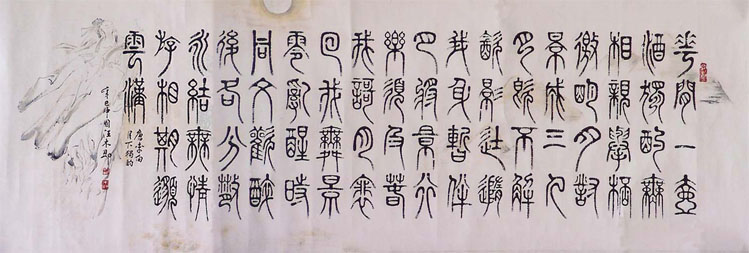 華間一壺
酒獨酌無
相親舉杯
邀明月對
景成三人
月既不解
飲影徒隨
我身暫伴
月將景行
樂須及春
我謌月裴
回我舞景
零亂醒時
同交歡醉
後各分散
永結無情
游相期邈
雲漢
唐李白
月下獨酌
辛巳